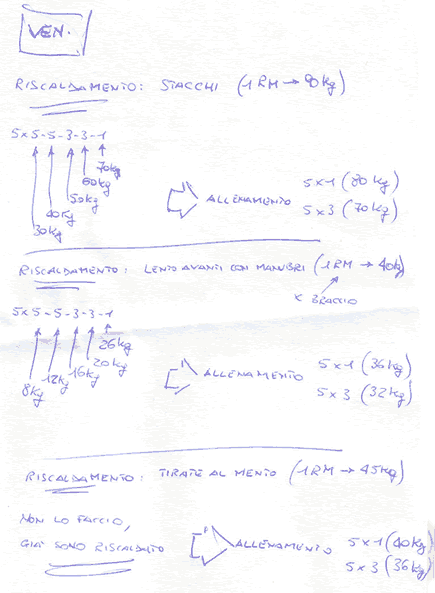 VEN.
RISCALDAMENTO: STACCHI (1RM → 90kg)
5x5-5-3-3-1
70kg
60kg
50kg
40kg
30kg
ALLENAMENTO
5x1 (80kg)
5x3 (70kg)
RISCALDAMENTO: LENTO AVANTI CON MANUBRI (1RM → 40kg)
x BRACCIO
5x5-5-3-3-1
26kg
20kg
16kg
12kg
8kg
ALLENAMENTO
5x1 (36kg)
5x3 (32kg)
RISCALDAMENTO: TIRATE AL MENTO (1RM → 45kg)
NON LO FACCIO,
GIA' SONO RISCALDATO
ALLENAMENTO
5x1 (40kg)
5x3 (36kg)